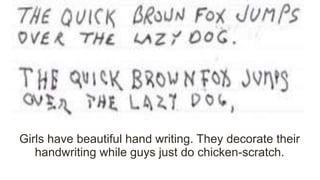 THE QUICK BROWN FOX JUMPS
OVER THE LAZY DOG.
THE QUICK BROWN FOX JUMPS
OVER THE LAZY DOG,
Girls have beautiful hand writing. They decorate their
handwriting while guys just do chicken-scratch.